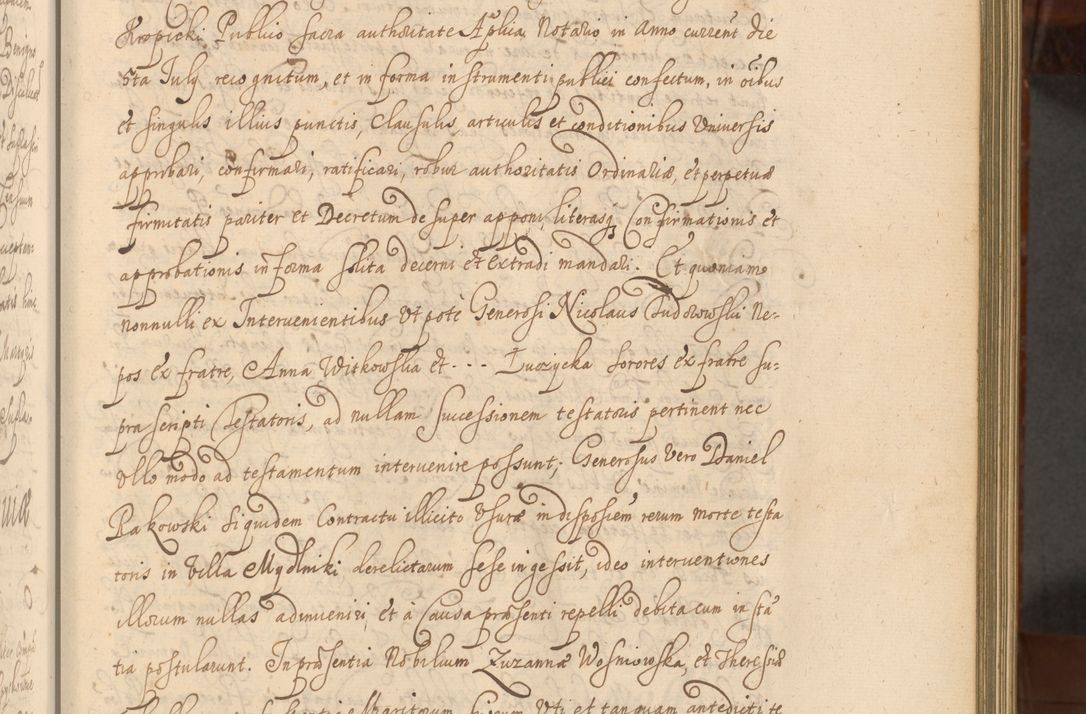 Kropicki Publico sacra authoritate Aplica Notario in Anno current die
5ta July recognitum, et in forma instrumenti publici confectum, in oibus
et singulis illius punctis, Clausulis, articulis et conditionibus Universis
approbari, confirmari, ratificari, robur authoritatis Ordinariæ, et perpetuæ
firmitatis pariter et Decretum desuper apponi, literasq Confirmationis et
approbationis in forma solita decerni et extradi mandari. Et quoniam
nonnulli ex Intervenientibus Utpote Generosi Nicolaus Ne-
pos ex fratre, Anna Witkowska et - - - Luozycka sorores ex fratre su-
prascripti Testatoris, ad nullam successionem testatoris pertinent nec
Ullo modo ad testamentum intervenire possunt; Generosus Vero Daniel
Rakowski siquidem Contractu illicito Usuræ in disposiem rerum morte testa
toris in Villa Mydlniki derelictarum sese ingessit, ideo interventiones
illorum nullas adinveniri, et à Causa præsenti repelli debita cum insta
tia postularunt. In præsentia Nobilium Zuzannæ Wosniowska, et Theresiæ
Maritorum suorum Uti et tanquam antedicti te